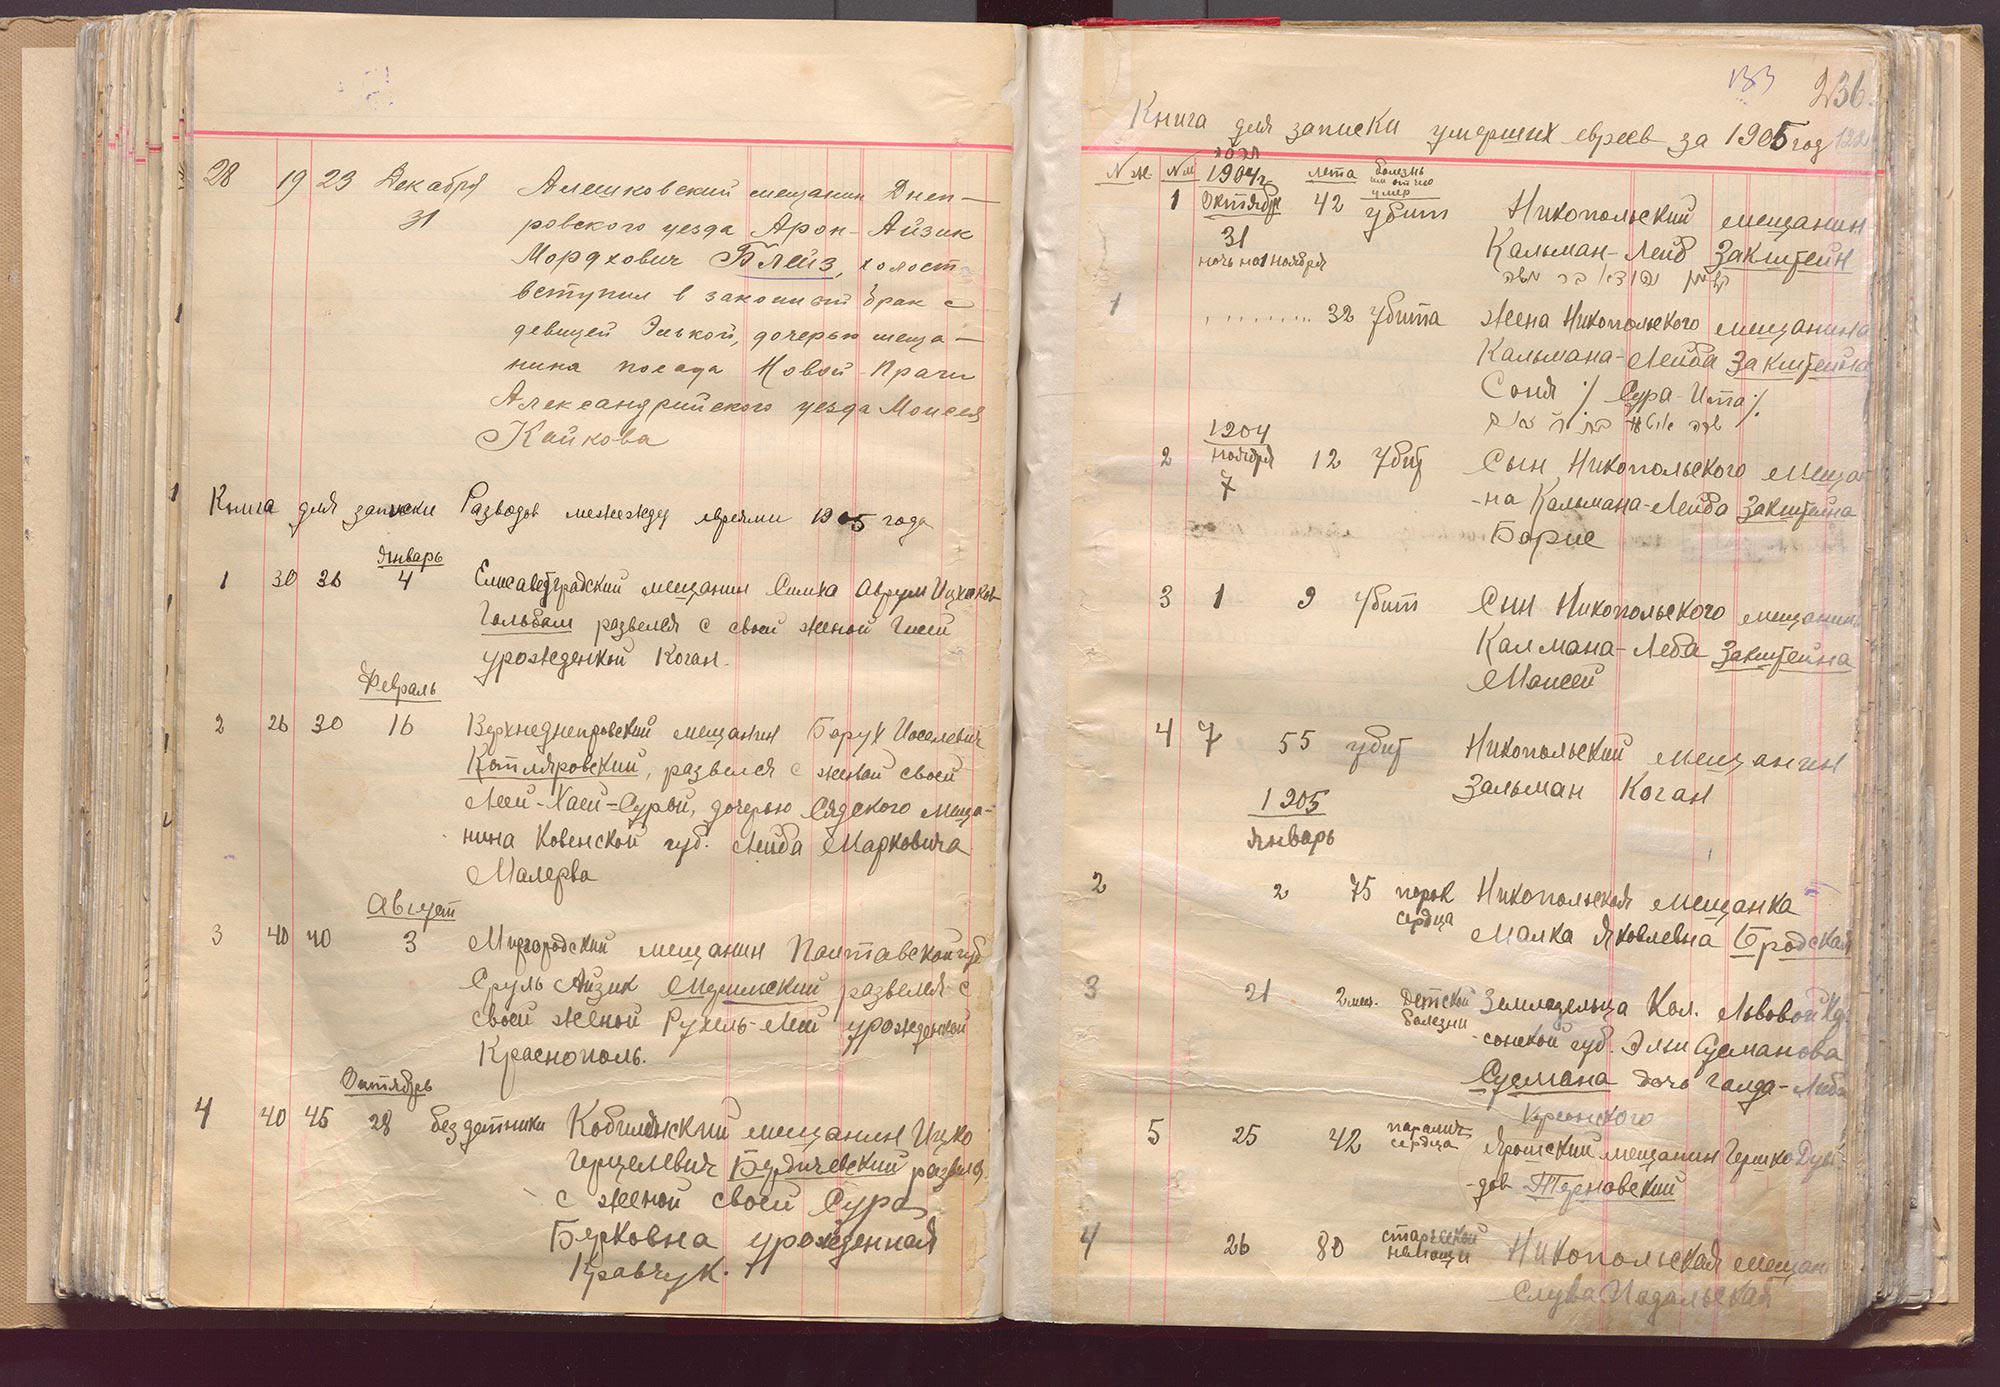 28 19 23 Декабря Алешковский мещанин Днеп-
31 ровского уезда Арон-Айзик
Мордхович Блейз, холост
вступил в законный брак с
девицей Элькой, дочерью меща-
нина посада Новой-Праги
Александрийского уезда Моисея
Кайкова
Книга для записки Разводов между евреями 1905 года
Январь
1 30 36 4 Елисаветградский мещанин Симха Аврум Ицхоков
Гольбан развелся с своей женой
урожденной Коган.
Февраль
2 26 30 16 Верхнеднепровский мещанин Борух Иоселевич
Котляровский, развелся с женой своей
Леей-Хаей-Сурой, дочерью Сядского меща-
нина Ковенской губ. Лейба Марковича
Малерва
Август
3 40 40 3 Миргородский мещанин Полтавской губ
Сруль Айзик развелся с
своей женой Рухель-Леей урожденной
Краснополь.
Октябрь
4 40 45 28 бездетники Кобилякский мещанин Ицко
Герцелевич Бердичевский развелся
с женой своей Сура
Берковна урожденная
Кравчук.
133 236
Книга для записки умерших евреев за 1905 год 122
№ ж. № м 1904 г. лета болезнь
умер
1 Октября 42 убит Никопольский мещанин
31 Кальман-Лейб Закштейн
ночь на 1 ноября
1 ......... 32 Убита жена Никопольского мещанина
Кальмана-Лейба Закштейна
Соня /. Сура-Ита ./
1904
2 ноября 12 Убит Сын Никопольского меща
7 -на Кальмана-Лейба Закштейна
Борис
3 1 9 Убит Сын Никопольского мещанина
Калмана-Леба Закштейна
Моисей
4 7 55 убит Никопольский мещанин
Зальман Коган
1905
Январь
2 2 75 порок Никопольская мещанка
сердца Малка Яковлевна Бродская
3 21 2 мес. Детской Земледельца Кол. Львовой Хер
болезни -сонской губ. Эли Сусманова
Сусмана дочь Голда-Либа
Херсонского
5 25 42 паралич мещанин Гершко Дуви-
сердца -дов Терновский
4 26 80 старческой Никопольская мещан
немощи Слува Подольская